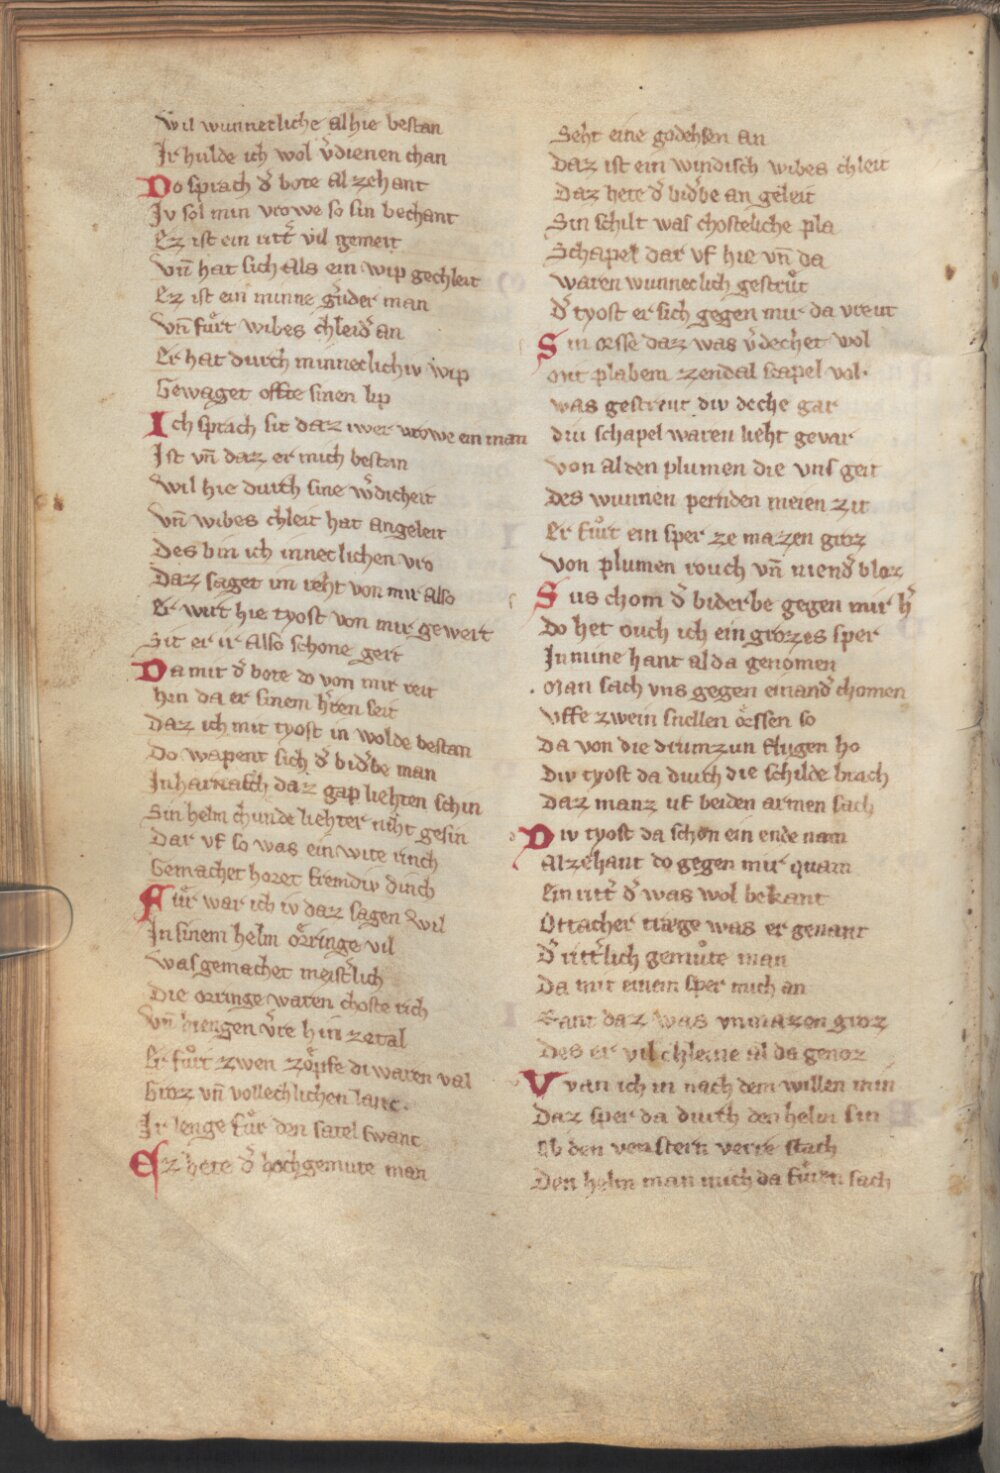 wil wunnecliche alhie bestan
Ir hulde ich wol v̓dienen chan
Do sprach d̓ bote al zehant
Iv sol min vrowe so sin bechant
Ez ist ein ritt̓ vil gemeit
Vn̄ hat sich als ein wip gechleit
Ez ist ein minne gernder man
Vn̄ fuͦrt wibes chleid̓ an
Er hat durch minneclichiv wip
Gewaget offte sinen lip
Ich sprach sit daz iwer vrowe ein man
Ist vn̄ daz er mich bestan
Wil hie durch sine w̓dicheit
Vn̄ wibes chleit hat angeleit
Des bin ich inneclichen vro
Daz saget im reht von mir also
Er wirt hie tyost von mir gewert
Sit er ir also schone gert
Da mit d̓ bote do von mir reit
Hin da er sinem h̓ren seit
Daz ich mit tyost in wolde bestan
Do wapent sich d̓ bid̓be man
In harnasch daz gap liehten schin
Sin helm chunde liehter niht gesin
Dar vf so was ein wite rinch
Gemachet horet fremdiv dinch
Fuͤr war ich iv daz sagen wil
In sinem helm orringe vil
Was gemachet meist̓lich
Die orringe waren choste rich
Vn̄ hiengen v̓re hin zetal
Er fuͦrt zwen zoͤpfe di waren val
Groz vn̄ vollechlichen lanc.
Ir lenge fuͤr den satel swanc
Ez hete d̓ hochgemute man
Seht eine godehsen an
Daz ist ein windisch wibes chleit
Daz hete d̓ bid̓be an geleit
Sin schilt was chosteliche pla
Schapel dar vf hie vn̄ da
waren wunneclich gestruͤt
D̓ tyost er sich gegen mir da vreut
Sin orsse daz was v̓dechet wol
Mit plabem zendal scapel vol.
was gestreut div deche gar
div schapel waren lieht gevar
von al den plumen die vns geit
Des wunnen pernden meien zit
Er fuͦrt ein sper ze mazen groz
Von plumen rouch vn̄ niend̓ bloz
Sus chom d̓ biderbe gegen mir h̓
Do het ouch ich ein grozes sper
In mine hant alda genomen
Man sach vns gegen einand̓ chomen
Vffe zwein snellen oͤrssen so
Da von die drumzun flugen ho
Div tyost da durch die schilde brach
Daz manz vf beiden armen sach
Div tyost da schon ein ende nam
Alzehant do gegen mir quam
Ein ritt̓ d̓ was wol bekant
Ottacher træge was er genant
D̓ ritt̓lich gemuͦte man
Da mit einem sper mich an
Rant daz was vnmazen groz
Des er vil chleine al da genoz
Wan ich in nach dem willen min
Daz sper da durch den helm sin
Ob den venstern verre stach
Den helm man mich da fuͤren sach